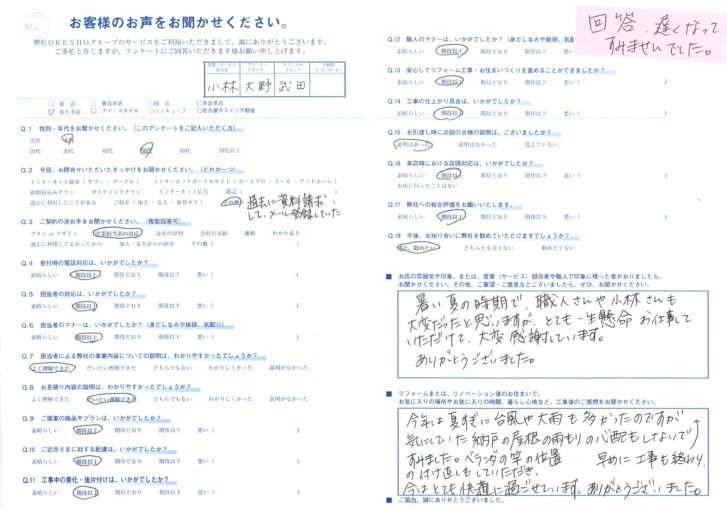 お客様のお声をお聞かせください。
弊社OKESHOグループのサービスをご利用いただきまして、誠にありがとうございます。
ご多忙と存じますが、アンケートにご回答いただきます様お願い申し上げます。
小林 大野 武田
Q.1 性別・年代をお聞かせください。(このアンケートをご記入いただく方)
男性 女性
20代 30代 40代 50代 60代 70代以上
Q.2 今回、お問合せいただいたきっかけをお聞かせください。(どれか一つ)
過去に資料請求
して、メール登録していた
Q.3 ご契約の決め手をお聞かせください。(複数回答可)
プラン or デザイン 営業担当者の対応 価格 わかり易さ
Q.4 受付時の電話対応は、いかがでしたか?
素晴らしい 期待以上 期待どおり 期待以下 悪い( )
Q.5 担当者の対応は、いかがでしたか?
素晴らしい 期待以上 期待どおり 期待以下 悪い( )
Q.6 担当者のマナーは、いかがでしたか?(身だしなみや挨拶、気配り)
素晴らしい 期待以上 期待どおり 期待以下 悪い( )
Q.7 担当者による弊社の事業内容についての説明は、わかりやすかったでしょうか?
よく理解できた だいたい理解できた どちらでもない わかりにくかった 説明がなかった
Q.8 お見積り内容の説明は、わかりやすかったでしょうか?
よく理解できた だいたい理解できた どちらでもない わかりにくかった 説明がなかった
Q.9 ご提案の商品やプランは、いかがでしたか?
素晴らしい 期待以上 期待どおり 期待以下 悪い( )
Q.10 ご近所さまに対する配慮は、いかがでしたか?
素晴らしい 期待以上 期待どおり 期待以下 悪い( )
Q.11 工事中の美化・後片付けは、いかがでしたか?
素晴らしい 期待以上 期待どおり 期待以下 悪い( )
回答、遅くなって
すみませんでした。
Q.12 職人のマナーは、いかがでしたか?(身だしなみや挨拶、気配
素晴らしい 期待以上 期待どおり 期待以下 悪い(
Q.13 安心してリフォーム工事・お住まいづくりを進めることができましたか?
素晴らしい 期待以上 期待どおり 期待以下 悪い( )
Q.14 工事の仕上がり具合は、いかがでしたか?
素晴らしい 期待以上 期待どおり 期待以下 悪い( )
Q.15 お引渡し時に次回の点検の説明は、ございましたか?
説明はあった 説明はなかった 覚えていない
Q.16 来店時における店頭対応は、いかがでしたか?
素晴らしい 期待以上 期待どおり 期待以下 悪い( )
お店に行ったことはない
Q.17 弊社への総合評価をお願いします。
素晴らしい 期待以上 期待どおり 期待以下 悪い( )
Q.18 今後、お知り合いに弊社を勧めていただけますでしょうか?
ぜひ、勧めたい どちらとも言えない 勧めたくない
■ お店の雰囲気や印象、または、営業(サービス)担当者や職人で印象に残った者がおりましたら、
お聞かせください。その他、ご要望・ご意見などございましたら、ぜひ、お聞かせください。
暑い夏の時期で、職人さんや小林さんも
大変だったと思いますが、とても一生懸命お仕事して
いただけて、大変感謝しています。
ありがとうございました。
■ リフォームまたは、リノベーション後のお住まいで、
お気に入りの場所やお気に入りの時間、暮らし心地など、工事後のご感想をお聞かせください。
今年は夏すぎに台風や大雨も多かったのですが
気にしていた納戸の屋根の雨もりの心配もしないで
すみました。ベランダの竿の位置 早めに工事も終わり、
の付け直しもしていただき、
今はとても快適に過ごせています。ありがとうございました。
■ ご協力、誠にありがとうございました。